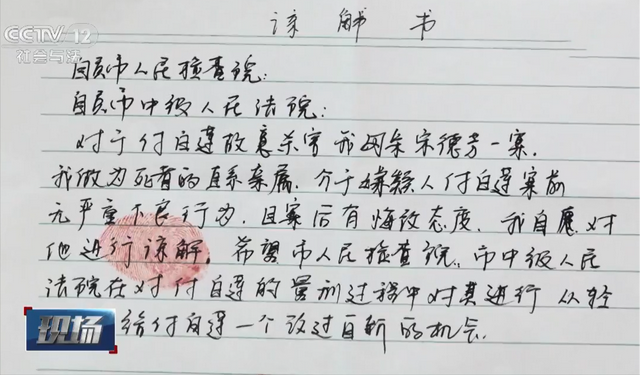 CCTV 12
社会与法
谅解书
自贡市人民检查院:
自贡市中级人民法院:
对于付自莲故意杀害我母亲宋德芳一案.
我做为死者的直系亲属.介于嫌疑人付自莲案前
无严重不良行为.且案后有悔改态度.我自愿对
他进行谅解.希望市人民检查院.市中级人民
法院在对付自莲的量刑过程中对其进行从轻
给付自莲一个改过自新的机会.
现场